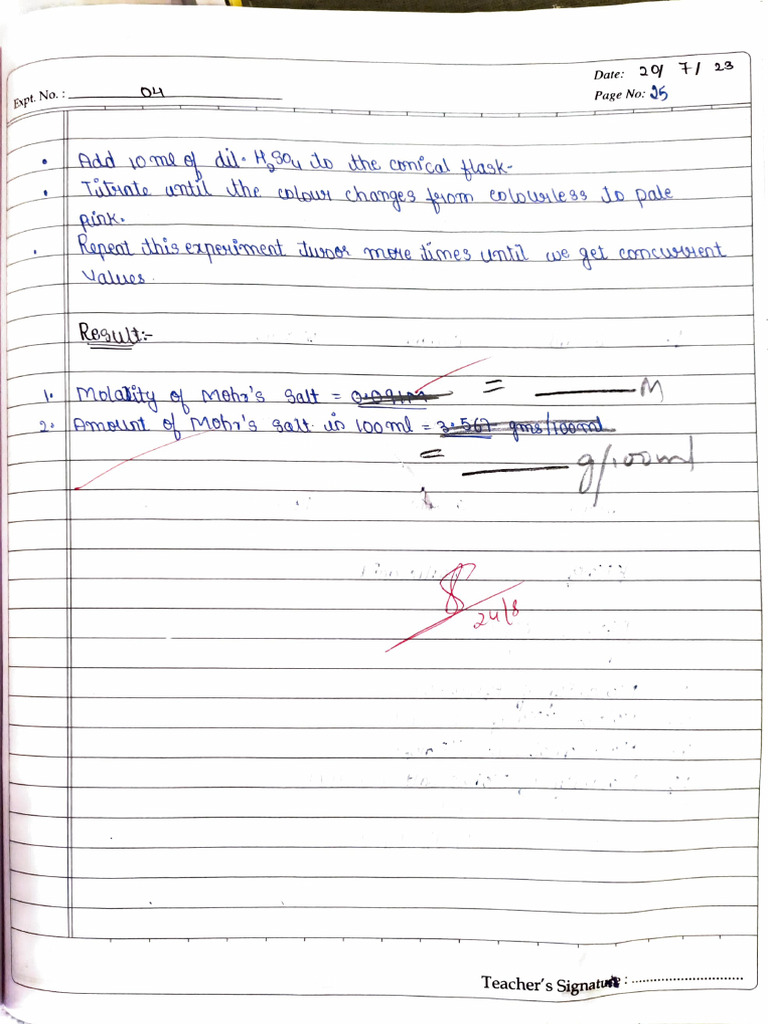 Date: 20/ 7/ 23
Expt. No. : 04
Page No: 25
• Add 10 ml of dil. H₂SO₄ to the conical flask.
• Titrate until the colour changes from colourless to pale
pink.
• Repeat this experiment twoor more times until we get concurrent
values.
Result:-
1. Molality of Mohr's salt = 0.091M = ______ M
2. Amount of Mohr's salt in 100 ml = 3.567 gms/100ml
= ______ g/100ml
24/8
Teacher's Signature :